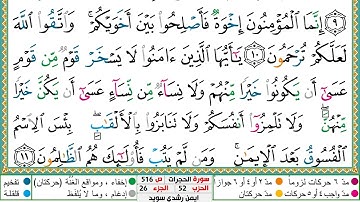 ٩ إِنَّمَا الْمُؤْمِنُونَ إِخْوَةٌ فَأَصْلِحُوا بَيْنَ أَخَوَيْكُمْ ۚ وَاتَّقُوا اللَّهَ
لَعَلَّكُمْ تُرْحَمُونَ ١٠ يَا أَيُّهَا الَّذِينَ آمَنُوا لَا يَسْخَرْ قَوْمٌ مِّن قَوْمٍ
عَسَىٰ أَن يَكُونُوا خَيْرًا مِّنْهُمْ وَلَا نِسَاءٌ مِّن نِّسَاءٍ عَسَىٰ أَن يَكُنَّ خَيْرًا
مِّنْهُنَّ ۖ وَلَا تَلْمِزُوا أَنفُسَكُمْ وَلَا تَنَابَزُوا بِالْأَلْقَابِ ۖ بِئْسَ الِاسْمُ
الْفُسُوقُ بَعْدَ الْإِيمَانِ ۚ وَمَن لَّمْ يَتُبْ فَأُولَٰئِكَ هُمُ الظَّالِمُونَ ١١
مدّ ٦ حركات لزوماً مدّ ٢ أو ٤ أو ٦ جوازاً سورة الحجرات ص 516 إخفاء، ومواقع الغُنَّة (حركتان) تفخيم
مدّ واجب ٤ أو ٥ حركات مدّ حركتان الحزب 52 الجزء 26 إدغام، وما لا يُلفَظ قلقلة
ايمن رشدي سويد